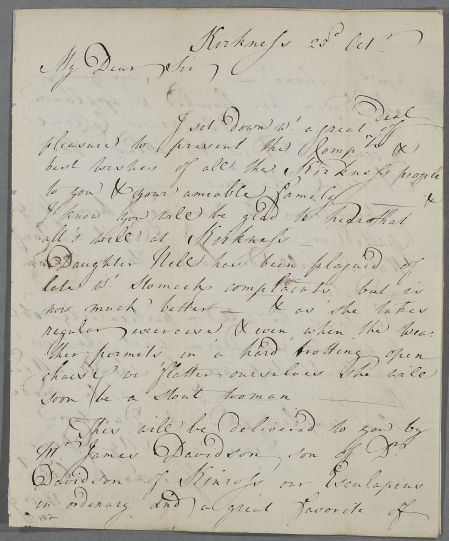 Kirkness 23d Octr.
My Dear Sir
I sit down wt. a great deal of
pleasure to present the Compts. &
best wishes of all the Kirkness people
to you & your amiable family &
I know you will be glad to hear that
all's well at Kirkness —
Daughter Nell has been plagued of
late wt. Stomach complaints but is
now much better — & as she takes
regular exercise & even when the wea-
ther permits in a hard trotting open
chaise we flatter ourselves she will
soon be a stout woman —
This will be delivered to you by
Mr. James Davidson son of Dr.
Davidson of Kinross our Esculapius
in ordinary and a great favorite of
182